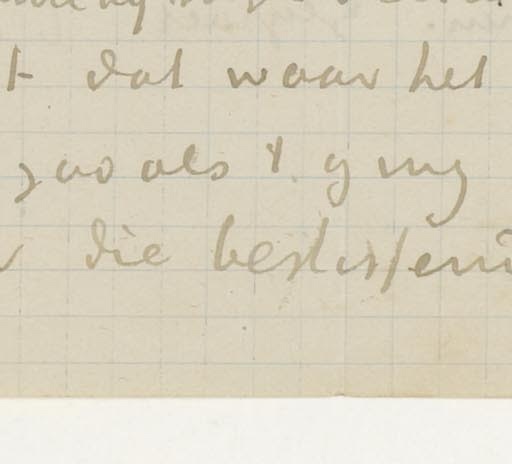 t dat waar het
zoo als 't ging
die beslissen